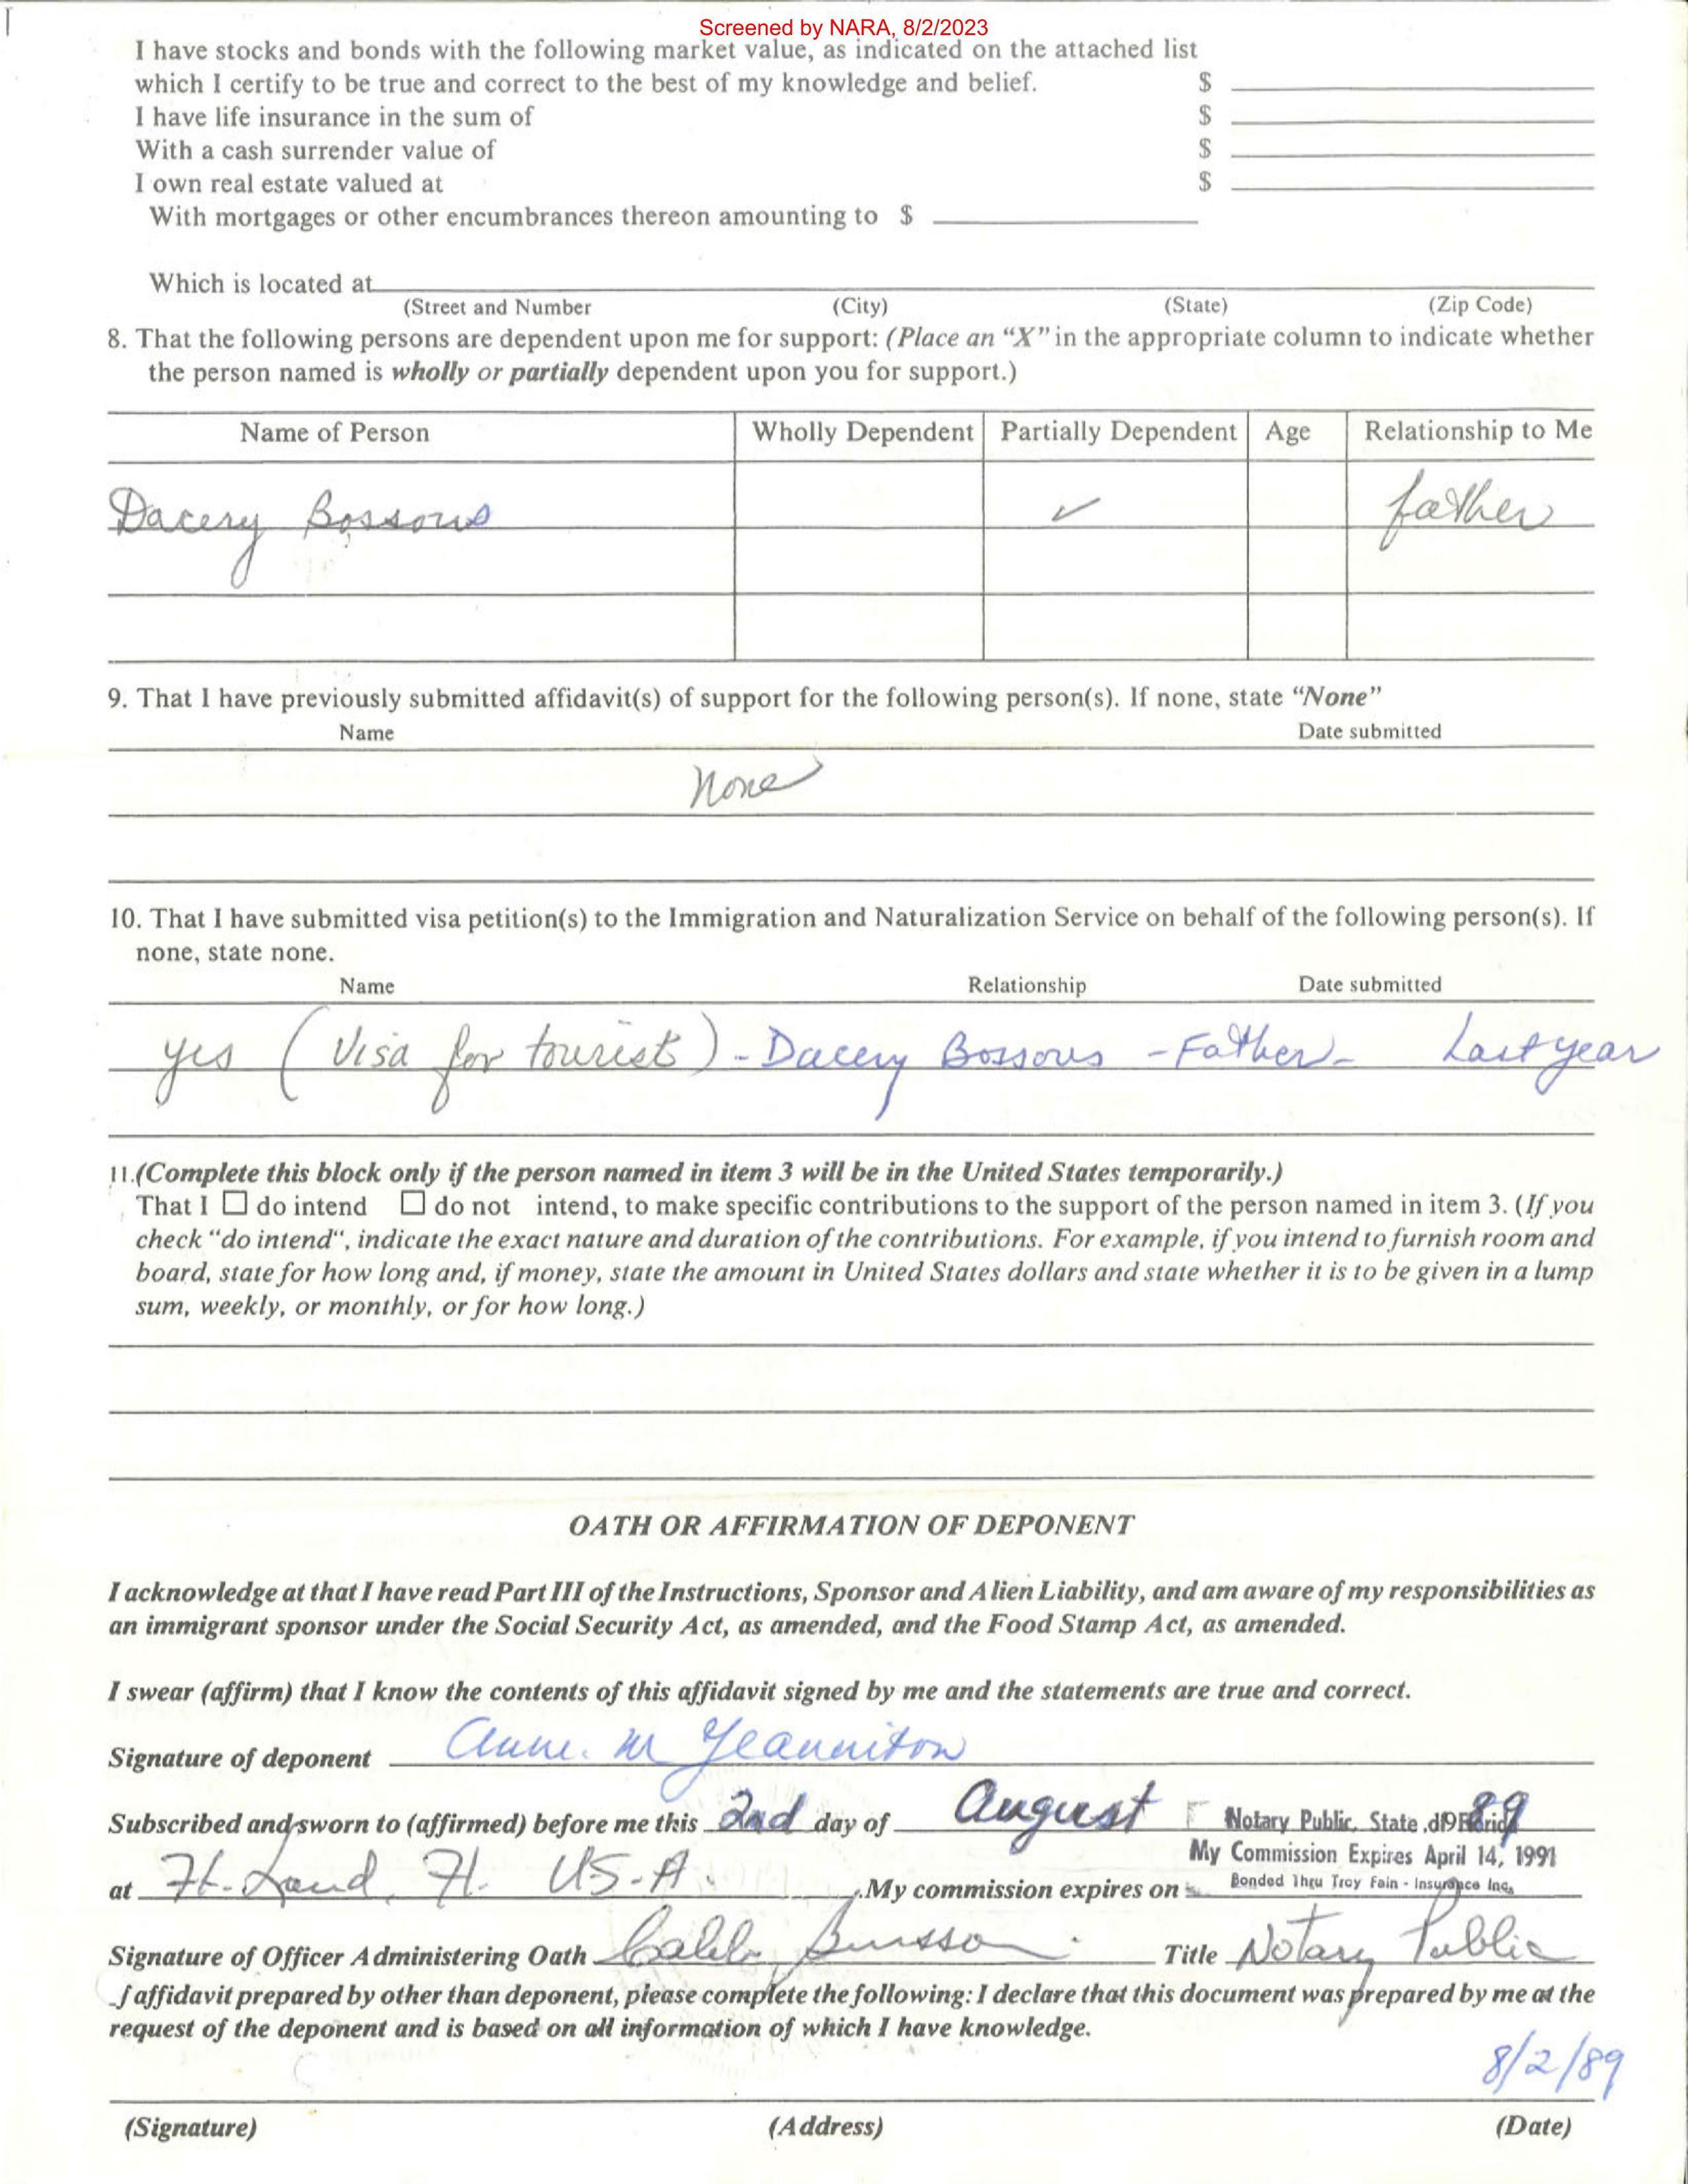 Screened by NARA, 8/2/2023
I have stocks and bonds with the following market value, as indicated on the attached list
which I certify to be true and correct to the best of my knowledge and belief. $
I have life insurance in the sum of $
With a cash surrender value of $
I own real estate valued at $
With mortgages or other encumbrances thereon amounting to $
Which is located at
(Street and Number (City) (State) (Zip Code)
8. That the following persons are dependent upon me for support: (Place an “X” in the appropriate column to indicate whether
the person named is wholly or partially dependent upon you for support.)
Name of Person Wholly Dependent Partially Dependent Age Relationship to Me
Dacery Bossous ✓ father
9. That I have previously submitted affidavit(s) of support for the following person(s). If none, state “None”
Name Date submitted
None
10. That I have submitted visa petition(s) to the Immigration and Naturalization Service on behalf of the following person(s). If
none, state none.
Name Relationship Date submitted
yes (Visa for tourist) - Dacery Bossous - Father - Last year
11.(Complete this block only if the person named in item 3 will be in the United States temporarily.)
That I ☐ do intend ☐ do not intend, to make specific contributions to the support of the person named in item 3. (If you
check “do intend“, indicate the exact nature and duration of the contributions. For example, if you intend to furnish room and
board, state for how long and, if money, state the amount in United States dollars and state whether it is to be given in a lump
sum, weekly, or monthly, or for how long.)
OATH OR AFFIRMATION OF DEPONENT
I acknowledge at that I have read Part III of the Instructions, Sponsor and Alien Liability, and am aware of my responsibilities as
an immigrant sponsor under the Social Security Act, as amended, and the Food Stamp Act, as amended.
I swear (affirm) that I know the contents of this affidavit signed by me and the statements are true and correct.
Signature of deponent Anne. M Jeanniton
Subscribed and sworn to (affirmed) before me this 2nd day of August ,19 89
Notary Public, State of Florida
My Commission Expires April 14, 1991
at Ft. Laud, Fl. US.A. .My commission expires on Bonded Thru Troy Fain - Insurance Inc.
Signature of Officer Administering Oath Title Notary Public
f affidavit prepared by other than deponent, please complete the following: I declare that this document was prepared by me at the
request of the deponent and is based on all information of which I have knowledge.
8/2/89
(Signature) (Address) (Date)